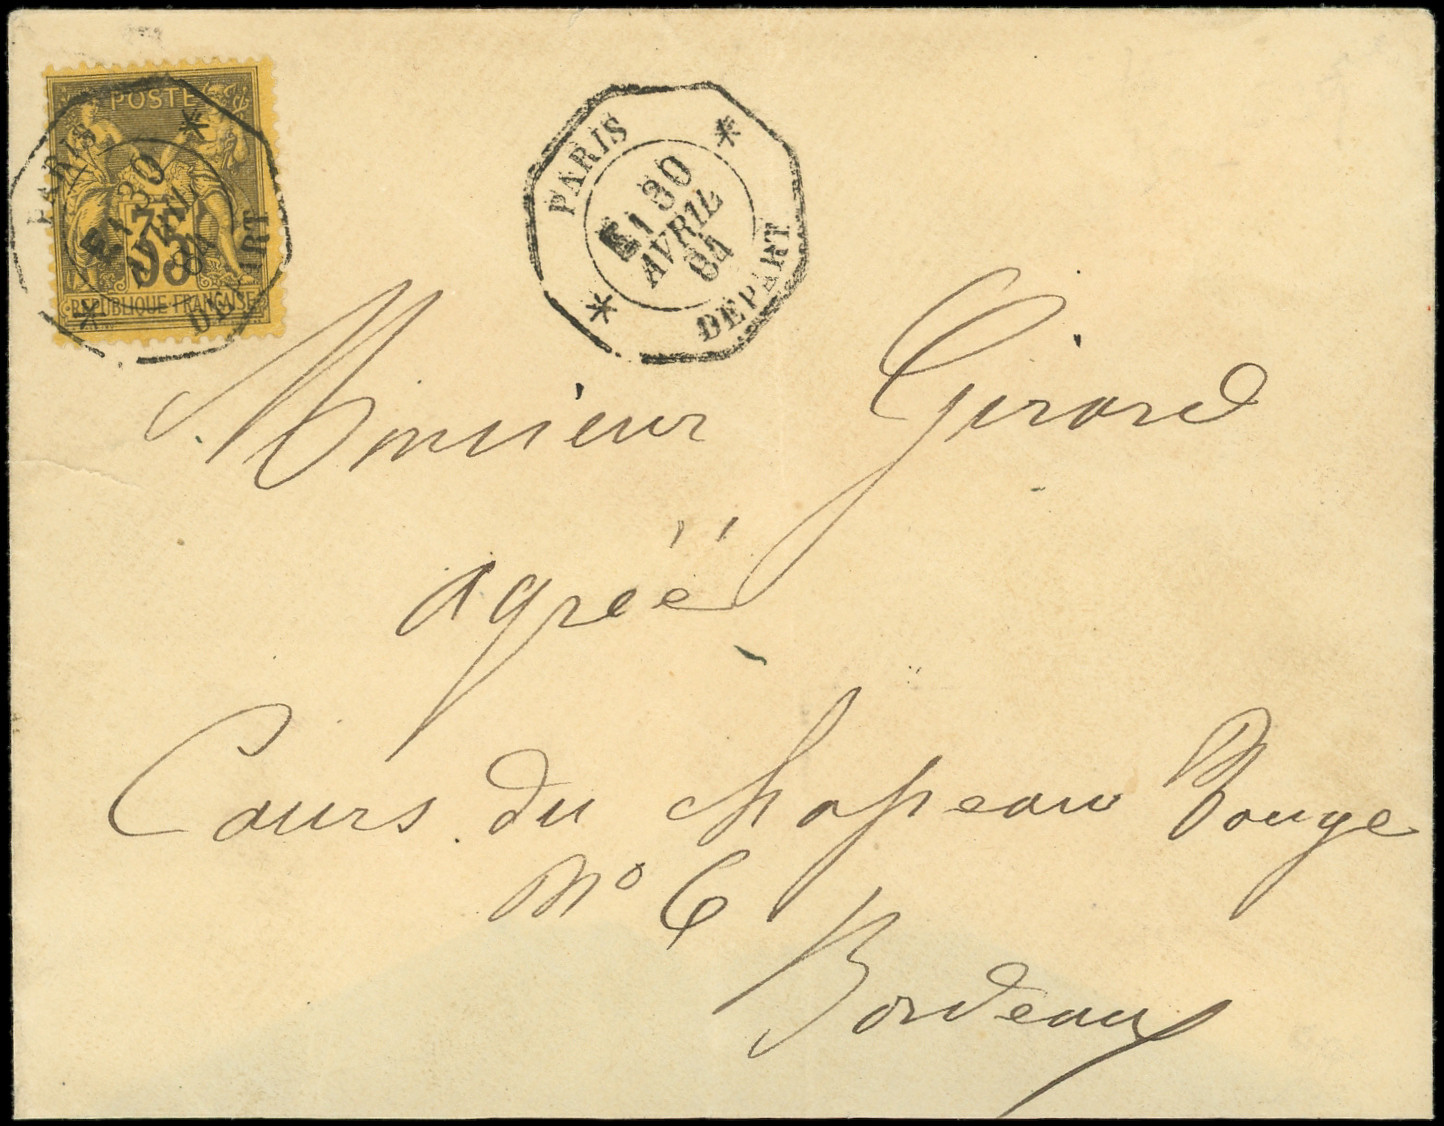 POSTE
35
REPUBLIQUE FRANÇAISE
PARIS
E1 30
AVRIL
84
DEPART
PARIS
E1 30
AVRIL
84
DEPART
Monsieur Girard
agréé
Cours du chapeau Rouge
No 6
Bordeaux